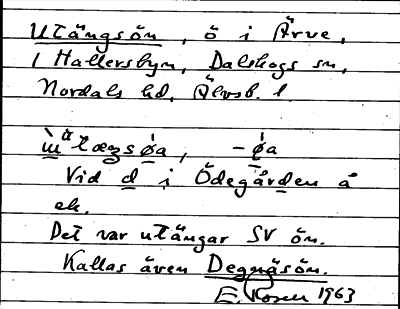 Utängsön, ö i Ärve,
i Hallersbyn, Dalskogs sn,
Nordals hd, Älvsb. l.
Vid d i Ödegården å
ek.
Det var utängar SV ön.
Kallas även Degnäsön.
E. Rosen 1963